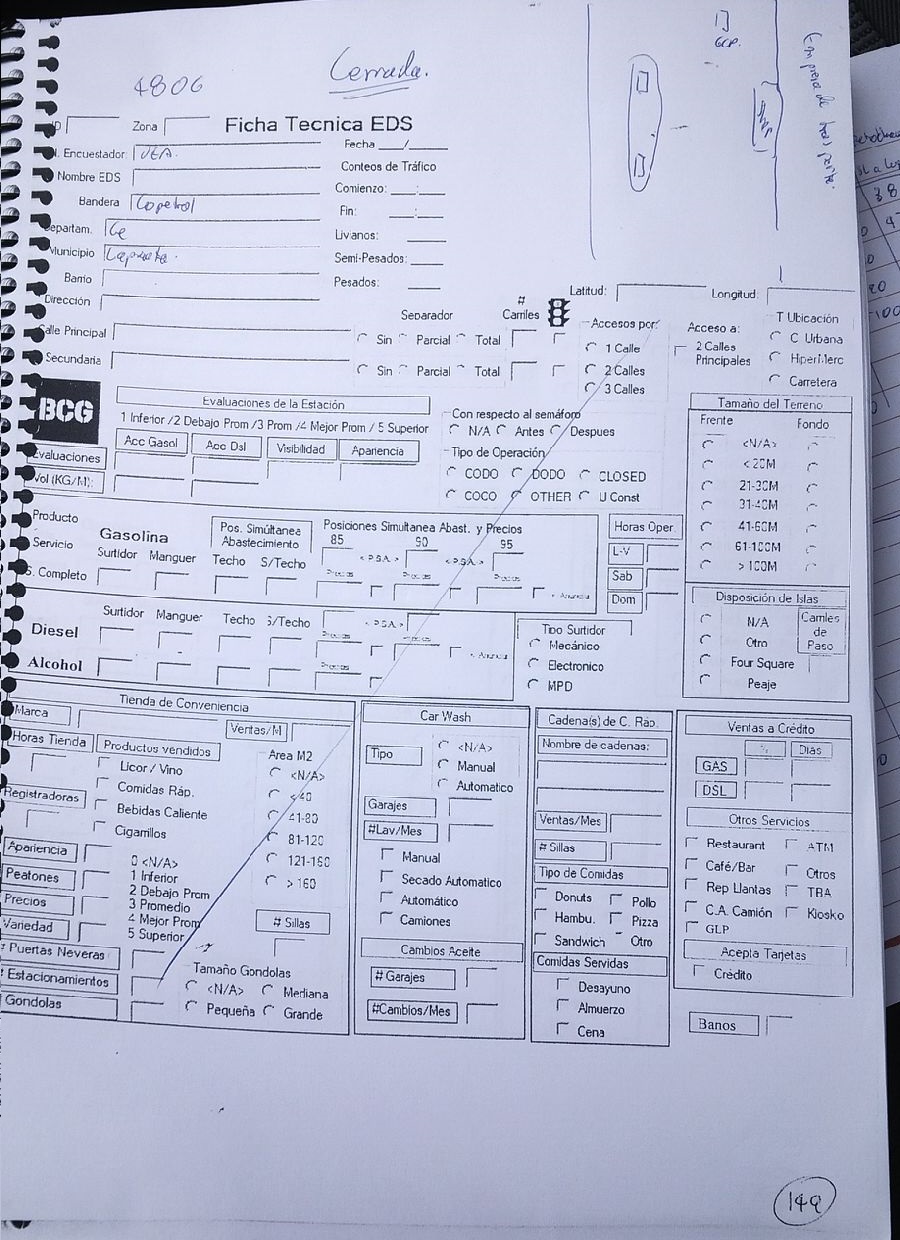 4806
Cerrada.
GLP.
Empresa de
Zona
Ficha Tecnica EDS
. Encuestador: VEA.
Nombre EDS
Bandera Copetrol
epartam. Ce
Municipio
Barrio
Dirección
Fecha ___/___
Conteos de Tráfico
Comienzo: ___:___
Fin: ___:___
Livianos: ___
Semi-Pesados: ___
Pesados: ___
Latitud:
Longitud:
alle Principal
Secundaria
Separador
Sin Parcial Total
Sin Parcial Total
# Carriles
Accesos por:
1 Calle
2 Calles
3 Calles
Acceso a:
2 Calles
Principales
T Ubicación
C Urbana
HiperMerc
Carretera
BCG
Evaluaciones de la Estación
1 Inferior /2 Debajo Prom /3 Prom /4 Mejor Prom / 5 Superior
Acc Gasol Acc Dsl Visibilidad Apariencia
Evaluaciones
Vol (KG/M):
Con respecto al semáforo
N/A Antes Despues
Tipo de Operación
CODO DODO CLOSED
COCO OTHER U Const
Tamaño del Terreno
Frente Fondo
<N/A>
< 20M
21-30M
31-40M
41-60M
61-100M
> 100M
Producto
Servicio
S. Completo
Gasolina
Surtidor Manguer
Pos. Simúltanea
Abastecimiento
Techo S/Techo
Posiciones Simultanea Abast. y Precios
85 90 95
< P.S.A. > < P.S.A. >
Precios Precios Precios
< Anuncia
Horas Oper.
L-V
Sab
Dom
Surtidor Manguer Techo S/Techo
< P.S.A. >
Precios Precios
< Anuncia
Diesel
Alcohol
Tipo Surtidor
Mecánico
Electronico
MPD
Disposición de Islas
N/A
Otro
Four Square
Peaje
Carriles
de
Paso
Tienda de Conveniencia
Marca
Ventas/M
Horas Tienda
Registradoras
Productos vendidos
Licor / Vino
Comidas Ráp.
Bebidas Caliente
Cigarrillos
Area M2
<N/A>
< 40
41-80
81-120
121-160
> 160
Apariencia
Peatones
Precios
Variedad
0 <N/A>
1 Inferior
2 Debajo Prom
3 Promedio
4 Mejor Prom
5 Superior
# Sillas
# Puertas Neveras
Estacionamientos
Gondolas
Tamaño Gondolas
<N/A> Mediana
Pequeña Grande
Car Wash
Tipo
<N/A>
Manual
Automatico
Garajes
#Lav/Mes
Manual
Secado Automatico
Automático
Camiones
Cambios Aceite
# Garajes
#Cambios/Mes
Cadena(s) de C. Ráp.
Nombre de cadenas:
Ventas/Mes
# Sillas
Tipo de Comidas
Donuts Pollo
Hambu. Pizza
Sandwich Otro
Comidas Servidas
Desayuno
Almuerzo
Cena
Ventas a Crédito
% Dias
GAS
DSL
Otros Servicios
Restaurant ATM
Café/Bar Otros
Rep Llantas TBA
C.A. Camión Kiosko
GLP
Acepta Tarjetas
Crédito
Banos
149